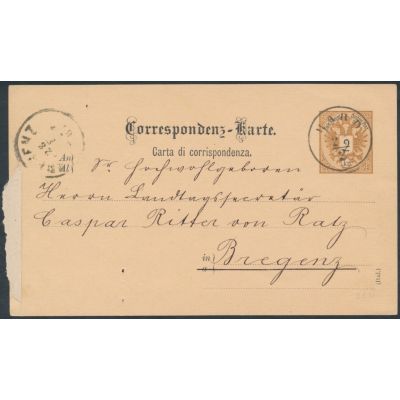 Correspondenz-Karte.
Carta di corrispondenza.
HARD
9
Sr. Hochwohlgeboren
Herrn Landtagssecretär
Caspar Ritter von Ratz
in Bregenz
(Ital.)